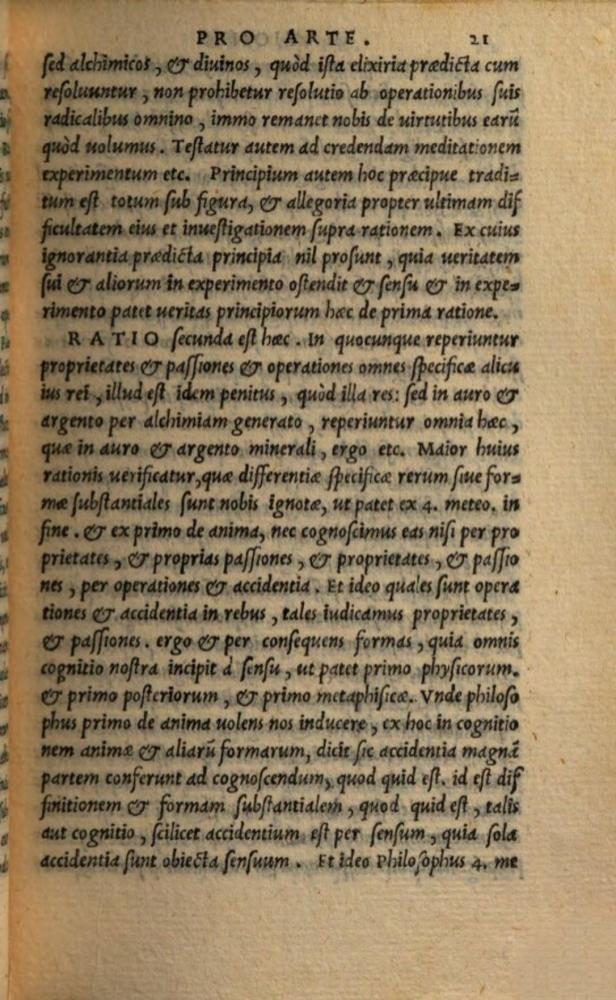 PRO ARTE. 21
sed alchimicos, & diuinos, quòd ista elixiria prædicta cum
resoluuntur, non prohibetur resolutio ab operationibus suis
radicalibus omnino, immo remanet nobis de uirtutibus earū
quòd uolumus. Testatur autem ad credendam meditationem
experimentum etc. Principium autem hoc præcipue tradi=
tum est totum sub figura, & allegoria propter ultimam dif
ficultatem eius et inuestigationem supra rationem. Ex cuius
ignorantia prædicta principia nil prosunt, quia ueritatem
sui & aliorum in experimento ostendit & sensu & in expe=
rimento patet ueritas principiorum hæc de prima ratione.
RATIO secunda est hæc. In quocunque reperiuntur
proprietates & passiones & operationes omnes specificæ alicu
ius rei, illud est idem penitus, quòd illa res: sed in auro &
argento per alchimiam generato, reperiuntur omnia hæc,
quæ in auro & argento minerali, ergo etc. Maior huius
rationis uerificatur, quæ differentiæ specificæ rerum siue for=
mæ substantiales sunt nobis ignotæ, ut patet ex 4. meteo. in
fine. & ex primo de anima, nec cognoscimus eas nisi per pro
prietates, & proprias passiones, & proprietates, & passio
nes, per operationes & accidentia. Et ideo quales sunt opera
tiones & accidentia in rebus, tales iudicamus proprietates,
& passiones. ergo & per consequens formas, quia omnis
cognitio nostra incipit à sensu, ut patet primo physicorum.
& primo posteriorum, & primo metaphisicæ. Vnde philoso
phus primo de anima uolens nos inducere, ex hoc in cognitio
nem animæ & aliarū formarum, dicit sic accidentia magnā
partem conferunt ad cognoscendum, quod quid est. id est dif
finitionem & formam substantialem, quod quid est, talis
aut cognitio, scilicet accidentium est per sensum, quia sola
accidentia sunt obiecta sensuum. Et ideo Philosophus 4. me